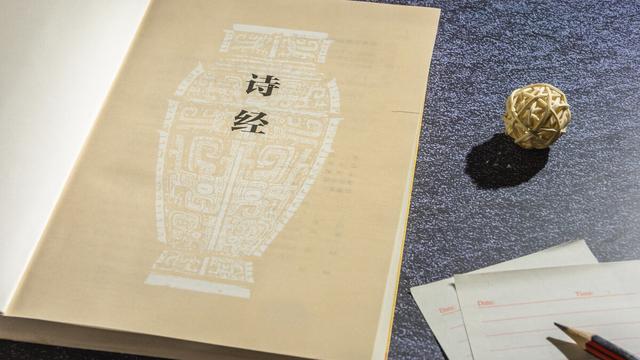 诗
经
Date:
Date:
Time: